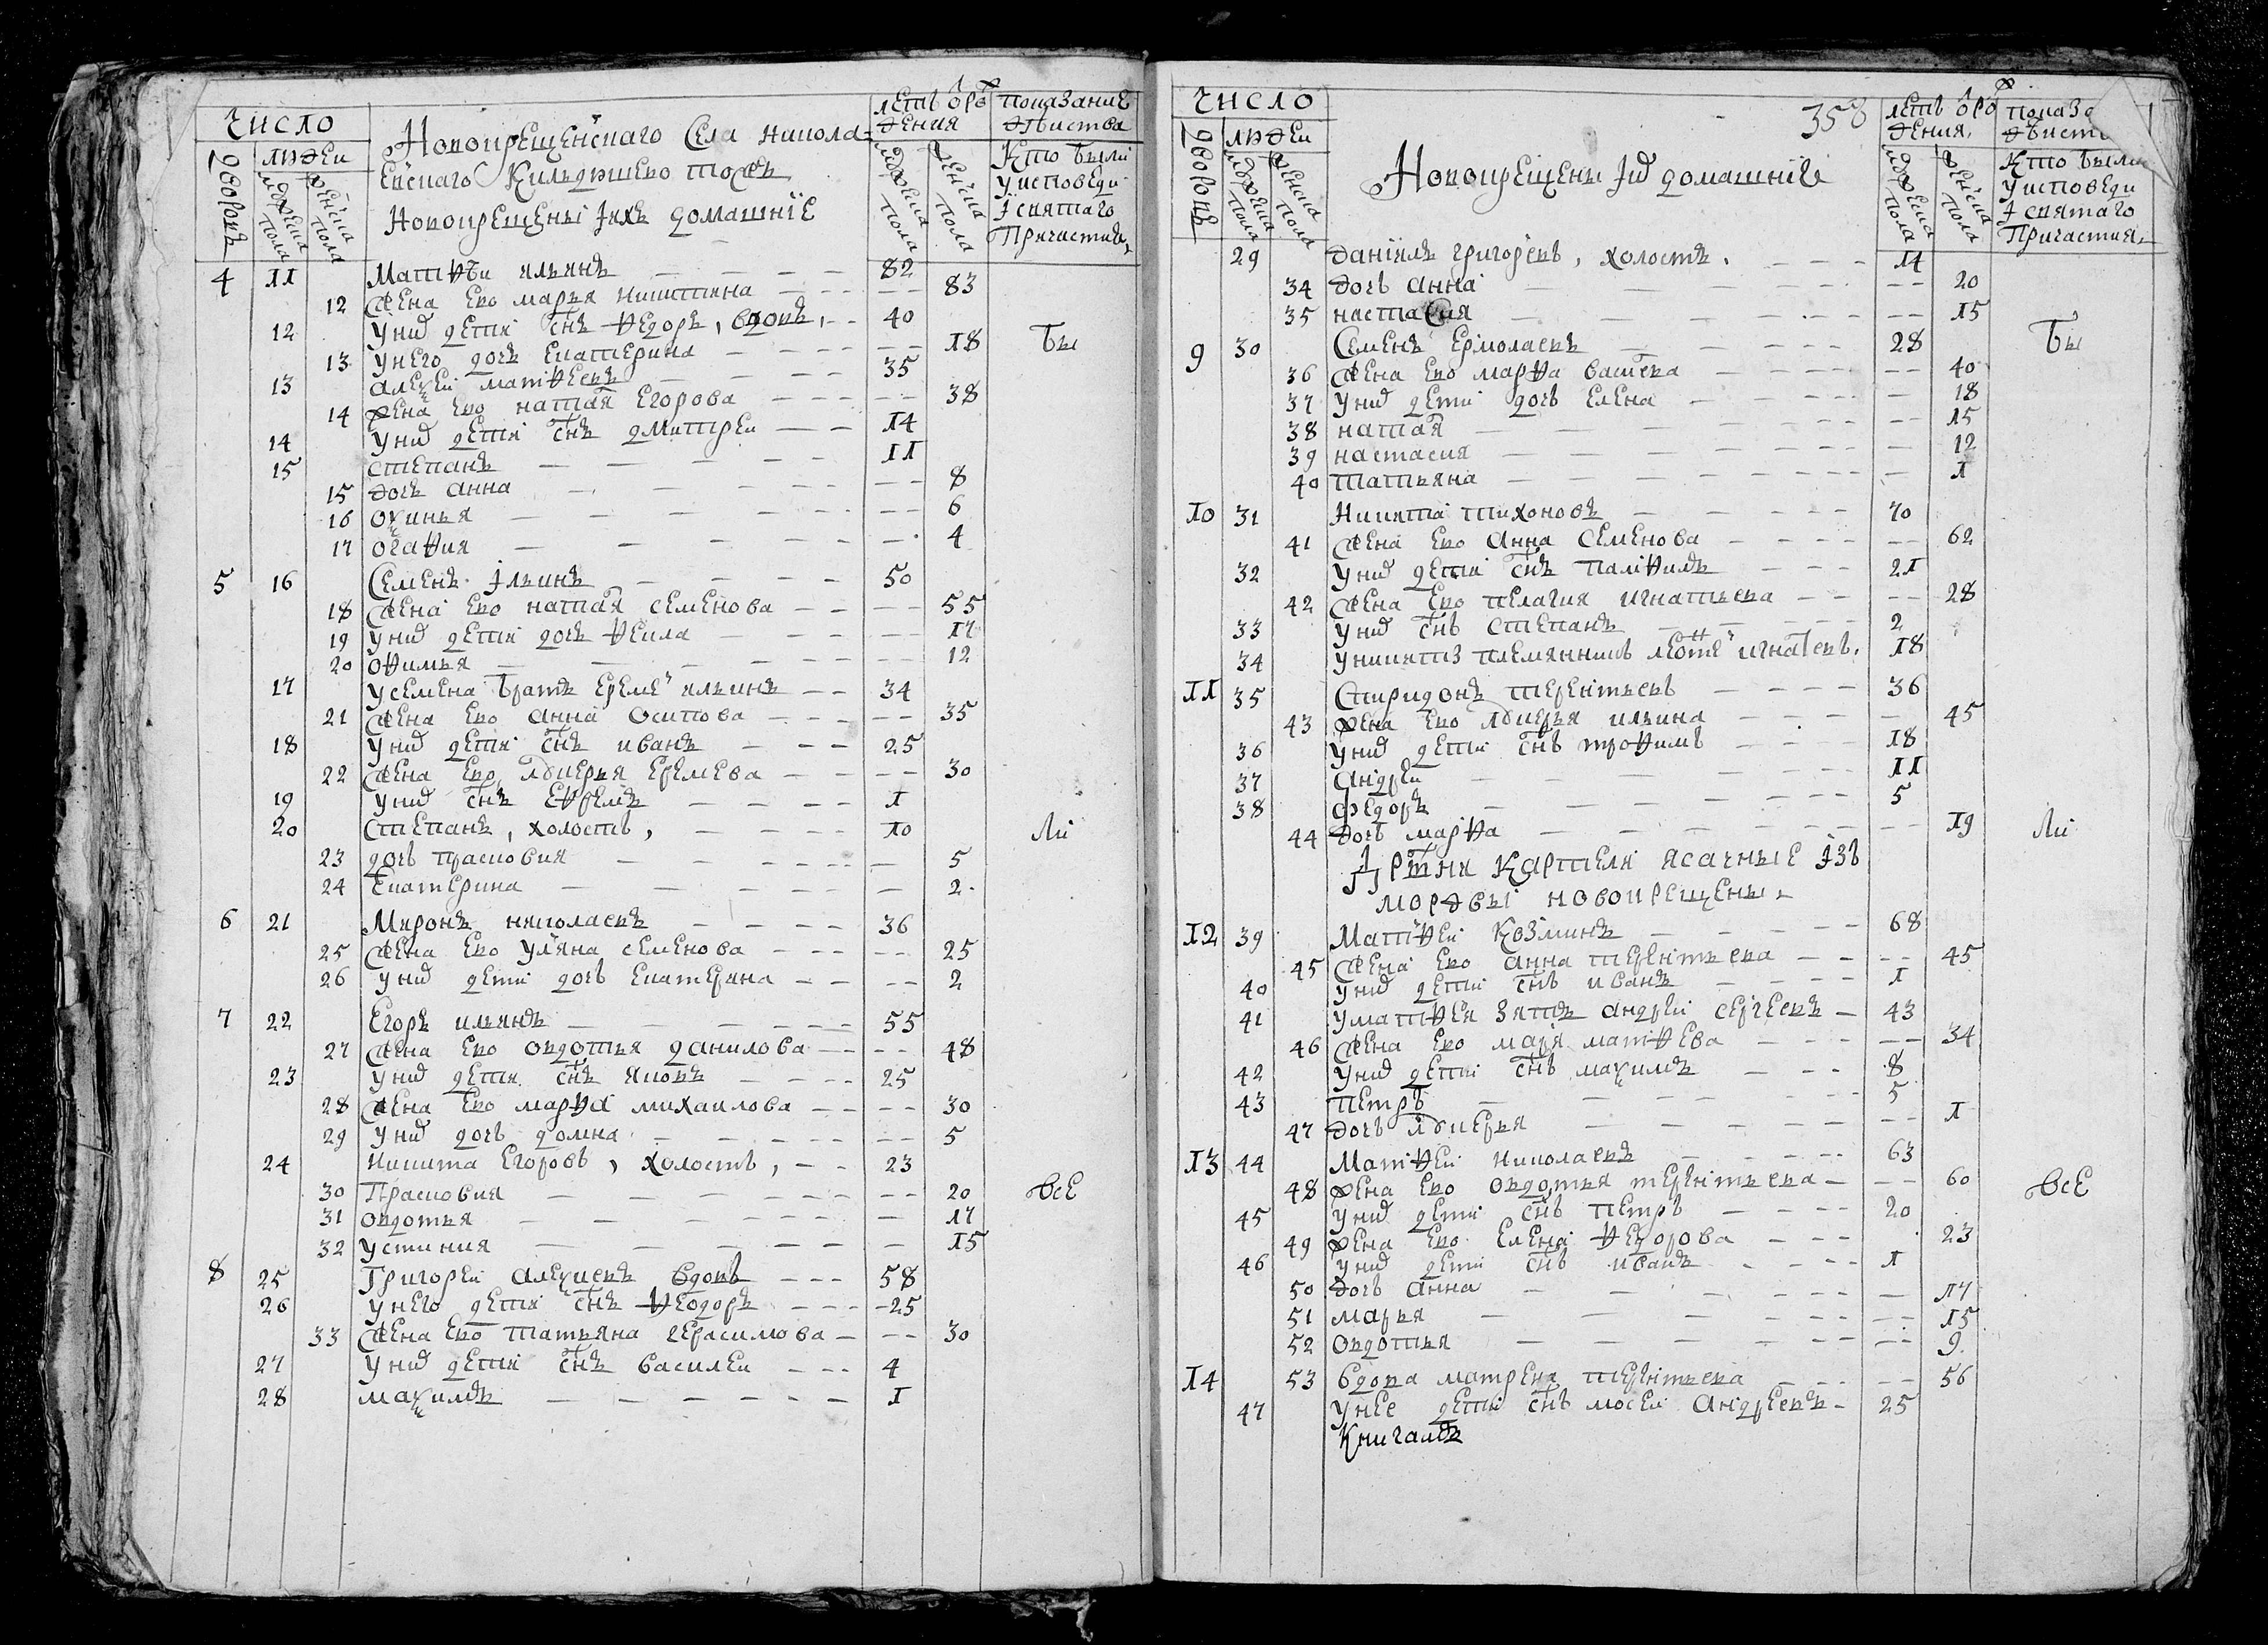 Число
дворовъ
людеи
мужеска пола
женска пола
Новокрещенскаго Села никола-
евскаго Кильдюшево тожъ
Новокрещены іихъ домашнїе
летъ ѿ рож
дения
мужеска пола
женска пола
показание
действа
Кто были
у исповеди
і святаго
Причастия
4 11 Матѳѣи ильинъ 82
12 Жена ево марья никитина 83
12 у нихъ дети снъ ѳедоръ, вдовъ, 40
13 у него дочь екатерина 18 бы
13 алеѯеи матвеевъ 35
14 жена ево наталя егорова 38
14 у нихъ дети снъ дмитреи 14
15 степанъ 11
15 дочь анна 8
16 оѯинья 6
17 огаѳия 4
5 16 Семенъ ільинъ 50
18 Жена ево наталя семенова 55
19 у нихъ дети дочь ѳекла 17
20 оѳимья 12
17 у семена братъ еремеи ильинъ 34
21 Жена ево анна осипова 35
18 у нихъ дети снъ иванъ 25
22 Жена ево лукерья еремева 30
19 у нихъ снъ еѳремъ 1
20 степанъ, холостъ, 10 ли
23 дочь прасковия 5
24 екатерина 2
6 21 Миронъ николаевъ 36
25 Жена ево уляна семенова 25
26 у нихъ дети дочь екатерина 2
7 22 Егоръ ильинъ 55
27 Жена ево овдотья данилова 48
23 у нихъ дети снъ яковъ 25
28 Жена ево марѳа михаилова 30
29 у нихъ дочь домна 5
24 никита егоровъ, холостъ, 23
30 Прасковия 20 все
31 овдотья 17
32 устиния 15
8 25 Григореи алеѯиевъ вдовъ 58
26 у него дети снъ ѳеодоръ 25
33 Жена ево татьяна герасимова 30
27 у нихъ дети снъ василеи 4
28 маѯимъ 1
Число
дворовъ
людеи
мужеска пола
женска пола
358
Новокрещены іихъ домашнїе
летъ ѿ рож
дения
мужеска пола
женска пола
Кто были
у исповеди
і святаго
Причастия
29 данїилъ григоревъ, холостъ. 14
34 дочь анна 20
35 настасия 15
9 30 Семенъ ермолаевъ 28 бы
36 Жена ево марѳа васиева 40
37 у нихъ дети дочь елена 18
38 наталя 15
39 настасия 12
40 татьяна 1
10 31 Никита тихоновъ 70
41 Жена ево анна семенова 62
32 у нихъ дети снъ панѳилъ 21
42 Жена ево пелагия игнатьева 28
33 у нихъ снъ степанъ 2
34 у никиты племянникъ игнатевъ 18
11 35 Спиридонъ терентьевъ 36
43 жена ево лукерья ильина 45
36 у нихъ дети снъ троѳимъ 18
37 андреи 11
38 федоръ 5
44 дочь марѳа 19 ли
Дртня Картели ясачные ізъ
мордвы новокрещены
12 39 Матѳеи козминъ 68
45 Жена ево анна терентьева 45
40 у нихъ дети снъ иванъ 1
41 у матѳея зять андреи сергеевъ 43
46 Жена ево маря матѳева 34
42 у нихъ дети снъ маѯимъ 8
43 петръ 5
47 дочь лукерья 1
13 44 Матѳеи николаевъ 63
48 жена ево овдотья терентьева 60 все
45 у нихъ дети снъ петръ 20
49 жена ево елена ѳедорова 23
46 у нихъ дети снъ иванъ 1
50 дочь анна 17
51 марья 15
52 овдотья 9
14 53 вдова матрена терентьева 56
47 у нее дети снъ мосеи андреевъ 25
Книгамъ